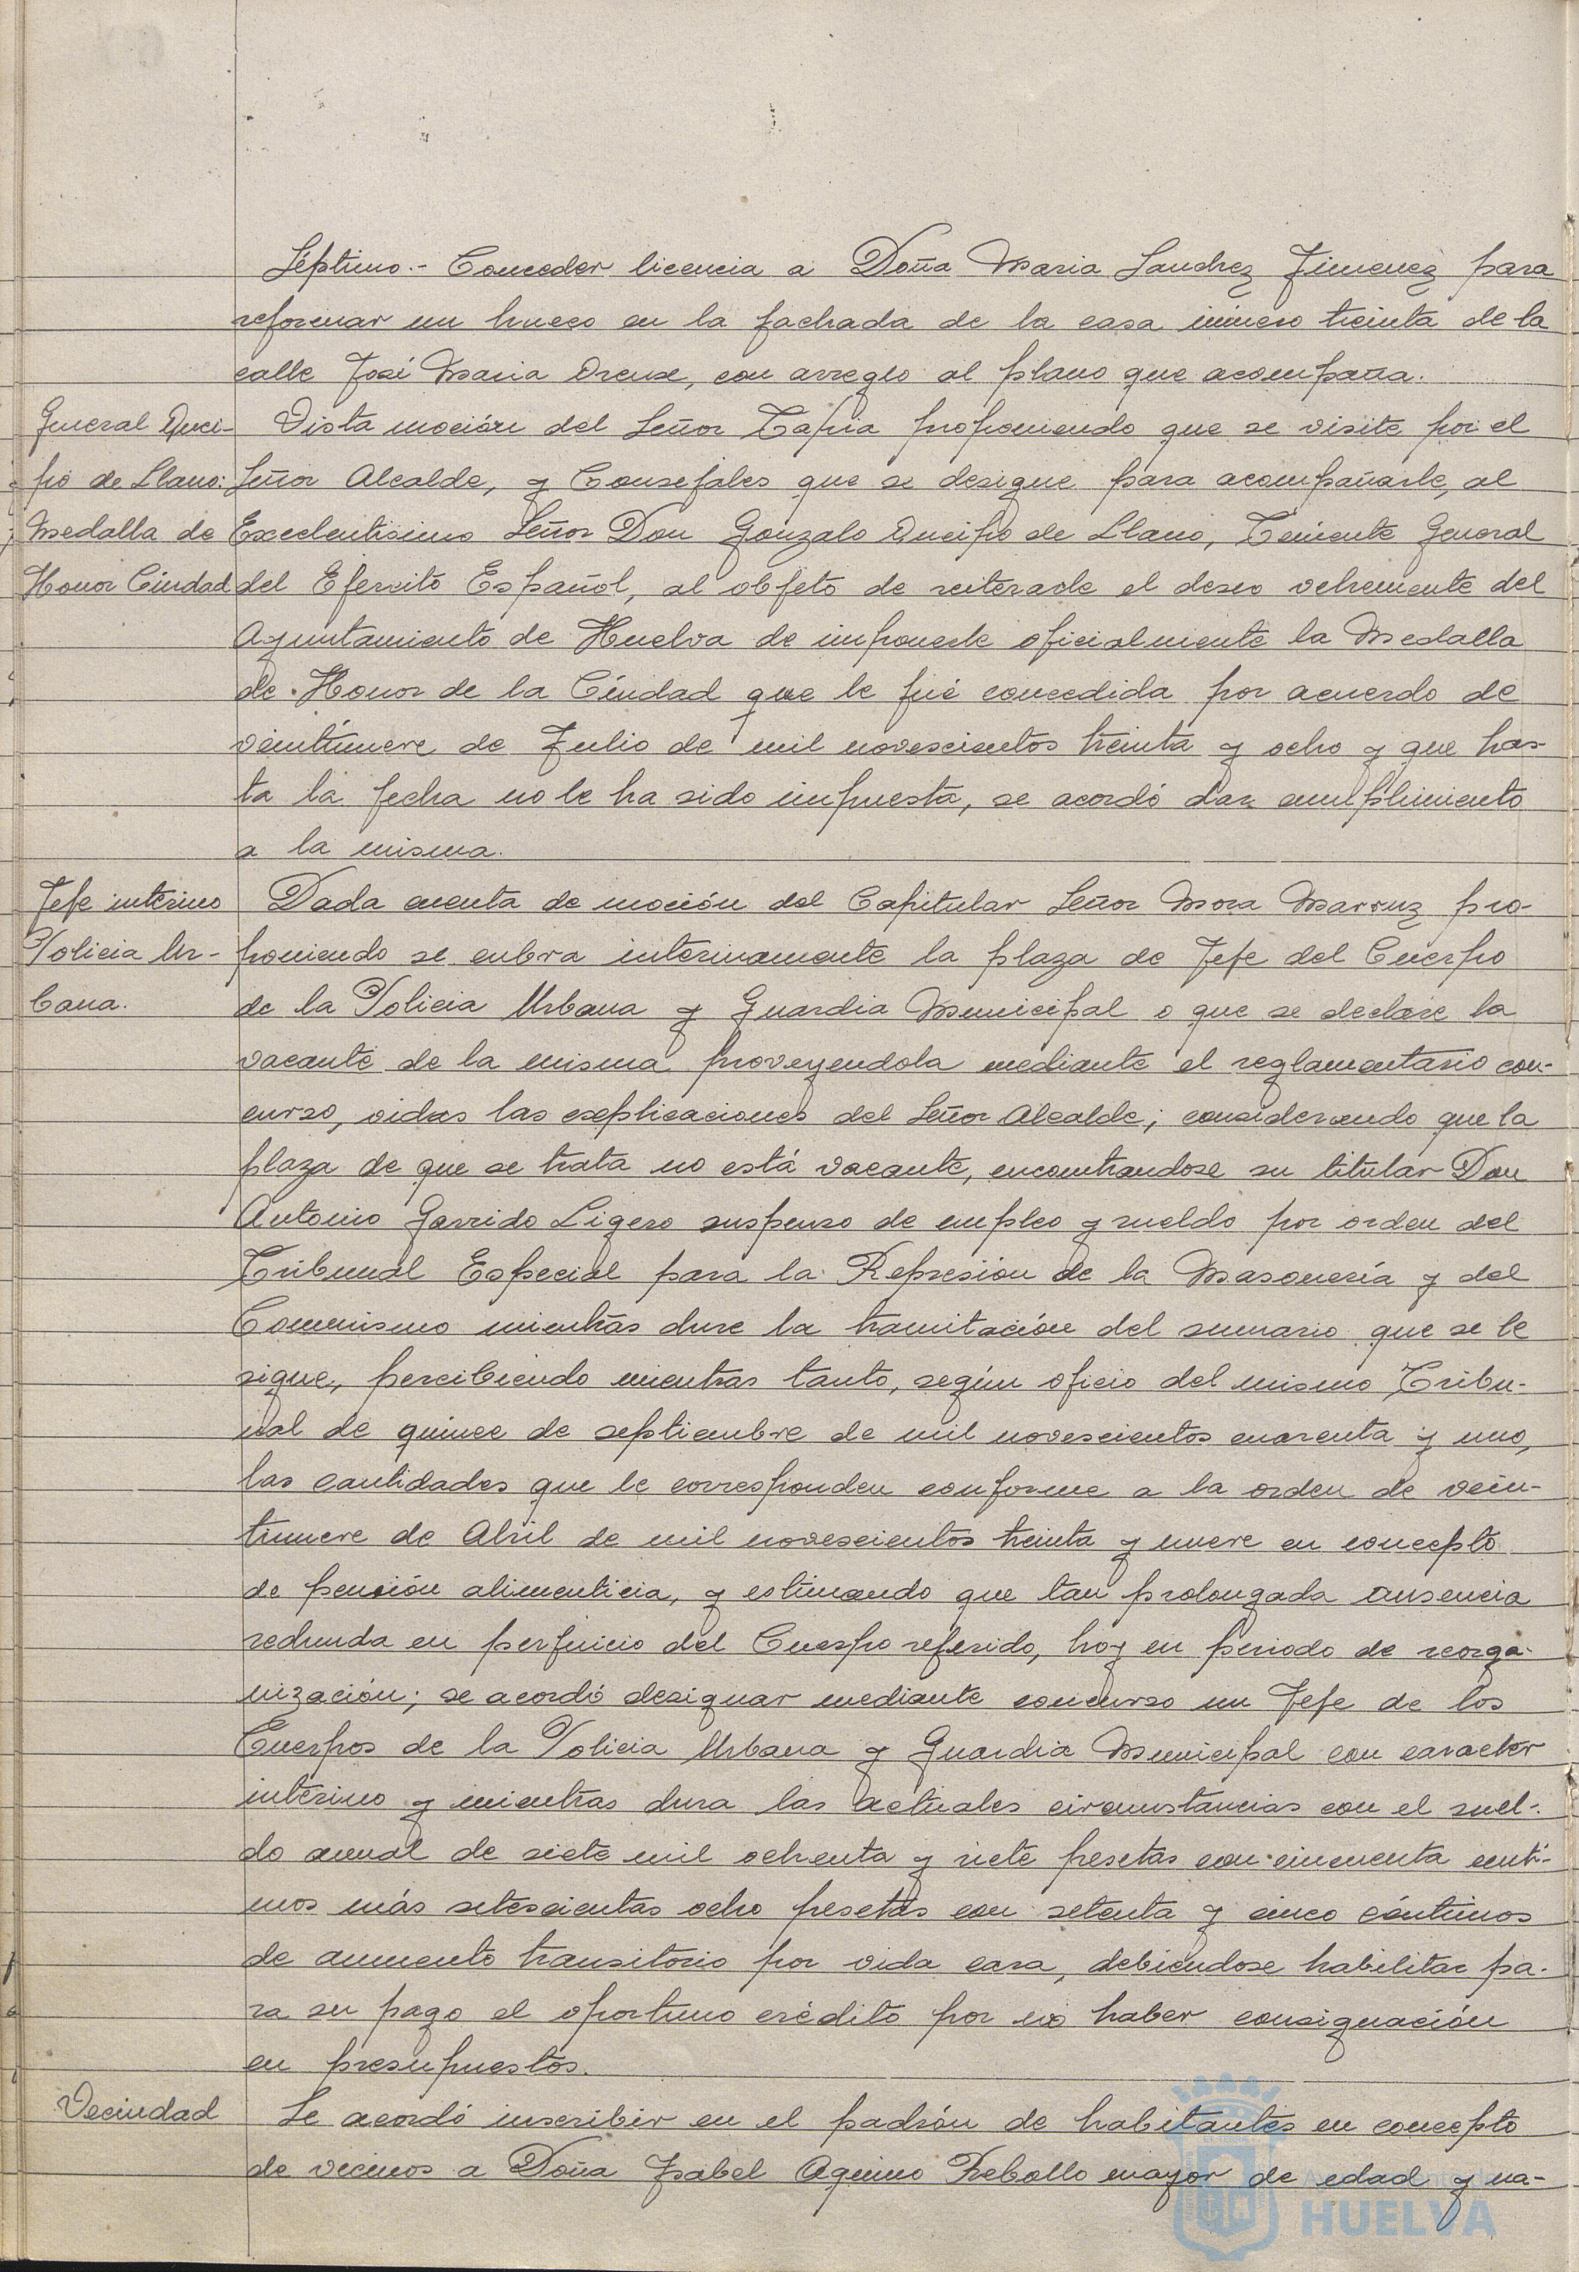 Séptimo.- Conceder licencia a Doña Maria Sanchez Jimenez para
reformar un hueco en la fachada de la casa número treinta de la
calle José Maria Orense, con arreglo al plano que acompaña.
General Quei-
po de Llano:
Medalla de
Honor Ciudad
Vista moción del Señor Tapia proponiendo que se visite por el
Señor Alcalde, y Consejales que se designe para acompañarle, al
Excelentisimo Señor Don Gonzalo Queipo de Llano, Teniente General
del Ejercito Español, al objeto de reiterarle el deseo vehemente del
Ayuntamiento de Huelva de imponerle oficialmente la Medalla
de Honor de la Ciudad que le fué concedida por acuerdo de
veintinueve de Julio de mil novescientos treinta y ocho y que has-
ta la fecha no le ha sido impuesta, se acordó dar cumplimiento
a la misma.
Jefe interino
Policia Ur-
bana.
Dada cuenta de moción del Capitular Señor Mora Marruz pro-
poniendo se cubra interinamente la plaza de Jefe del Cuerpo
de la Policia Urbana y Guardia Municipal o que se declare la
vacante de la misma proveyendola mediante el reglamentario con-
curso, oidas las explicaciones del Señor Alcalde; considerando que la
plaza de que se trata no está vacante, encontrandose su titular Don
Antonio Garrido Ligero suspenso de empleo y sueldo por orden del
Tribunal Especial para la Represion de la Masonería y del
Comunismo mientras dure la tramitación del sumario que se le
sigue, percibiendo mientras tanto, según oficio del mismo Tribu-
nal de quince de septiembre de mil novescientos cuarenta y uno,
las cantidades que le corresponden conforme a la orden de vein-
tinueve de Abril de mil novescientos treinta y nueve en concepto
de pensión alimenticia, y estimando que tan prolongada ausencia
redunda en perjuicio del Cuerpo referido, hoy en periodo de reorga-
nización; se acordó designar mediante concurso un Jefe de los
Cuerpos de la Policia Urbana y Guardia Municipal con caracter
interino y mientras dura las actuales circunstancias con el suel-
do anual de siete mil ochenta y siete pesetas con cincuenta centi-
mos más setescientas ocho pesetas con setenta y cinco céntimos
de aumento transitorio por vida cara, debiendose habilitar pa-
ra su pago el oportuno crédito por no haber consignación
en presupuestos.
Vecindad
Se acordó inscribir en el padrón de habitantes en concepto
de vecinos a Doña Isabel Aquino Rebollo mayor de edad y na-
HUELVA